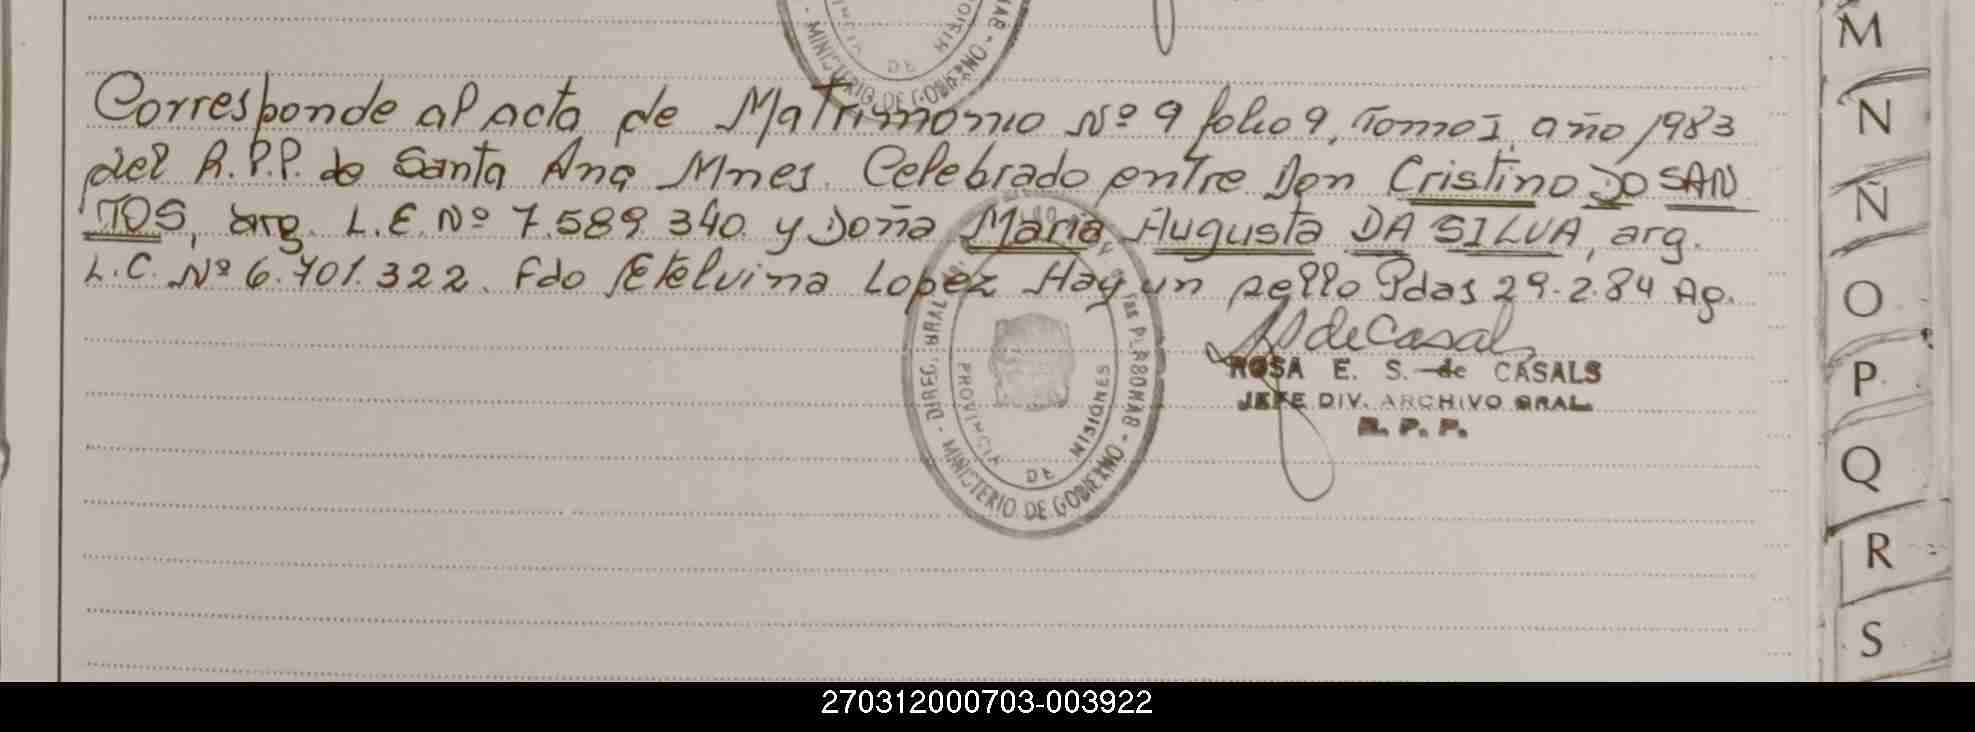 Corresponde al acta de Matrimonio Nº 9 folio 9, Tomo I, año 1983
del R.P.P. de Santa Ana Mnes. Celebrado entre Don Cristino DO SAN
TOS, arg. L.E. Nº 7.589.340. y Doña Maria Augusta DA SILVA, arg.
L.C. Nº 6.701.322. Fdo Etelvina Lopez Hay un sello Pdas 29.2.84 Ag.
ROSA E. S. de CASALS
JEFE DIV. ARCHIVO GRAL.
R. P. P.
DIREC. GRAL
PERSONAS
PROVINCIA DE MISIONES
MINISTERIO DE GOBIERNO
MINISTERIO DE GOBIERNO
DE
M
N
Ñ
O
P
Q
R
S
270312000703-003922